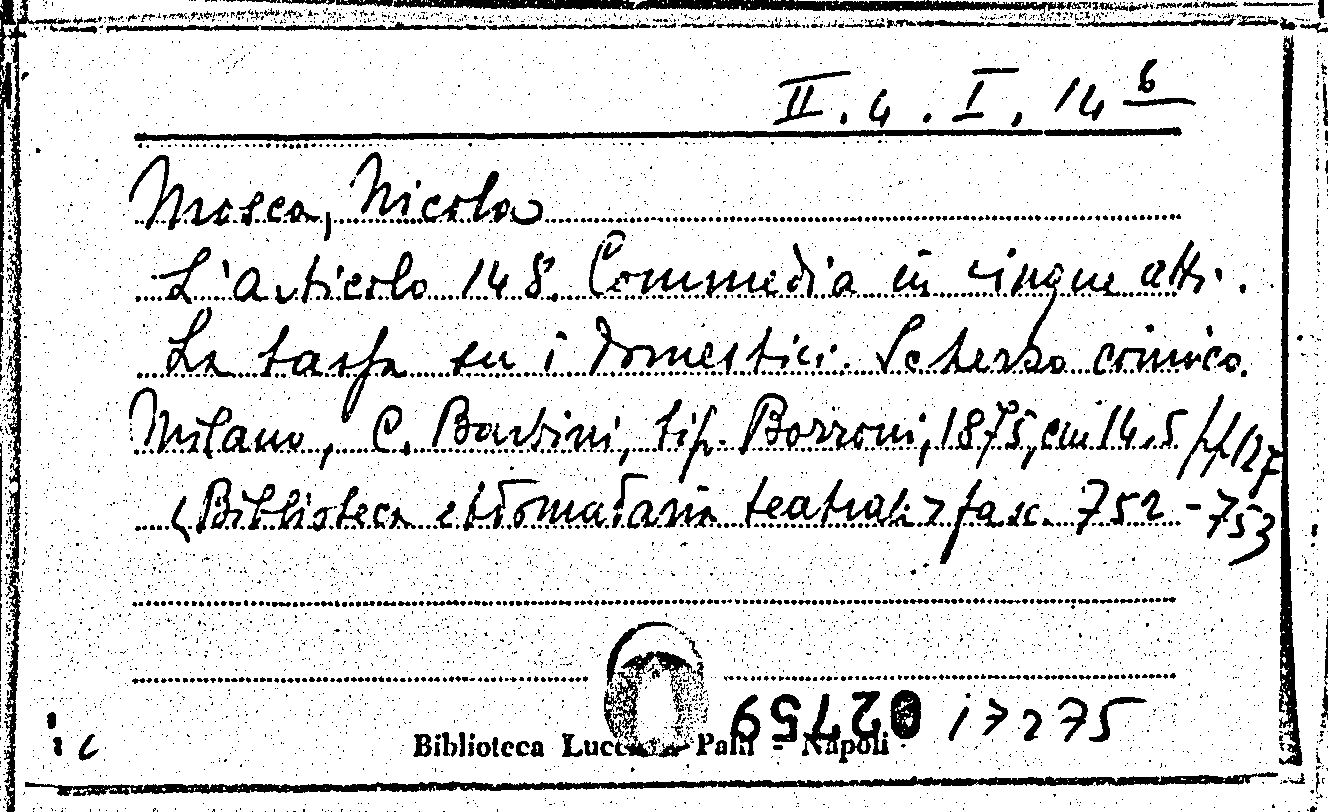 II. 4. I. 14 6
Mosca, Nicola
L'articolo 148. Commedia in cinque atti.
La tassa su i domestici. Scherzo comico.
Milano, C. Barbini, tip. Borroni, 1875, cm 14,5 pp 127
<Biblioteca ebdomadaria teatrale> fasc. 752-753
17275
Biblioteca - Napoli